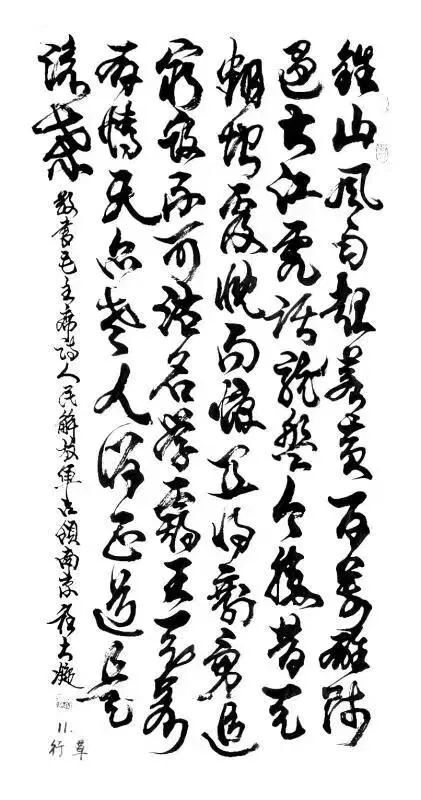 鍾山風雨起蒼黃百萬雄師
過大江虎踞龍盤今勝昔天
翻地覆慨而慷宜將剩勇追
窮寇不可沽名學霸王天若
有情天亦老人間正道是
滄桑
敬書毛主席詩人民解放軍占領南京
11.
行草